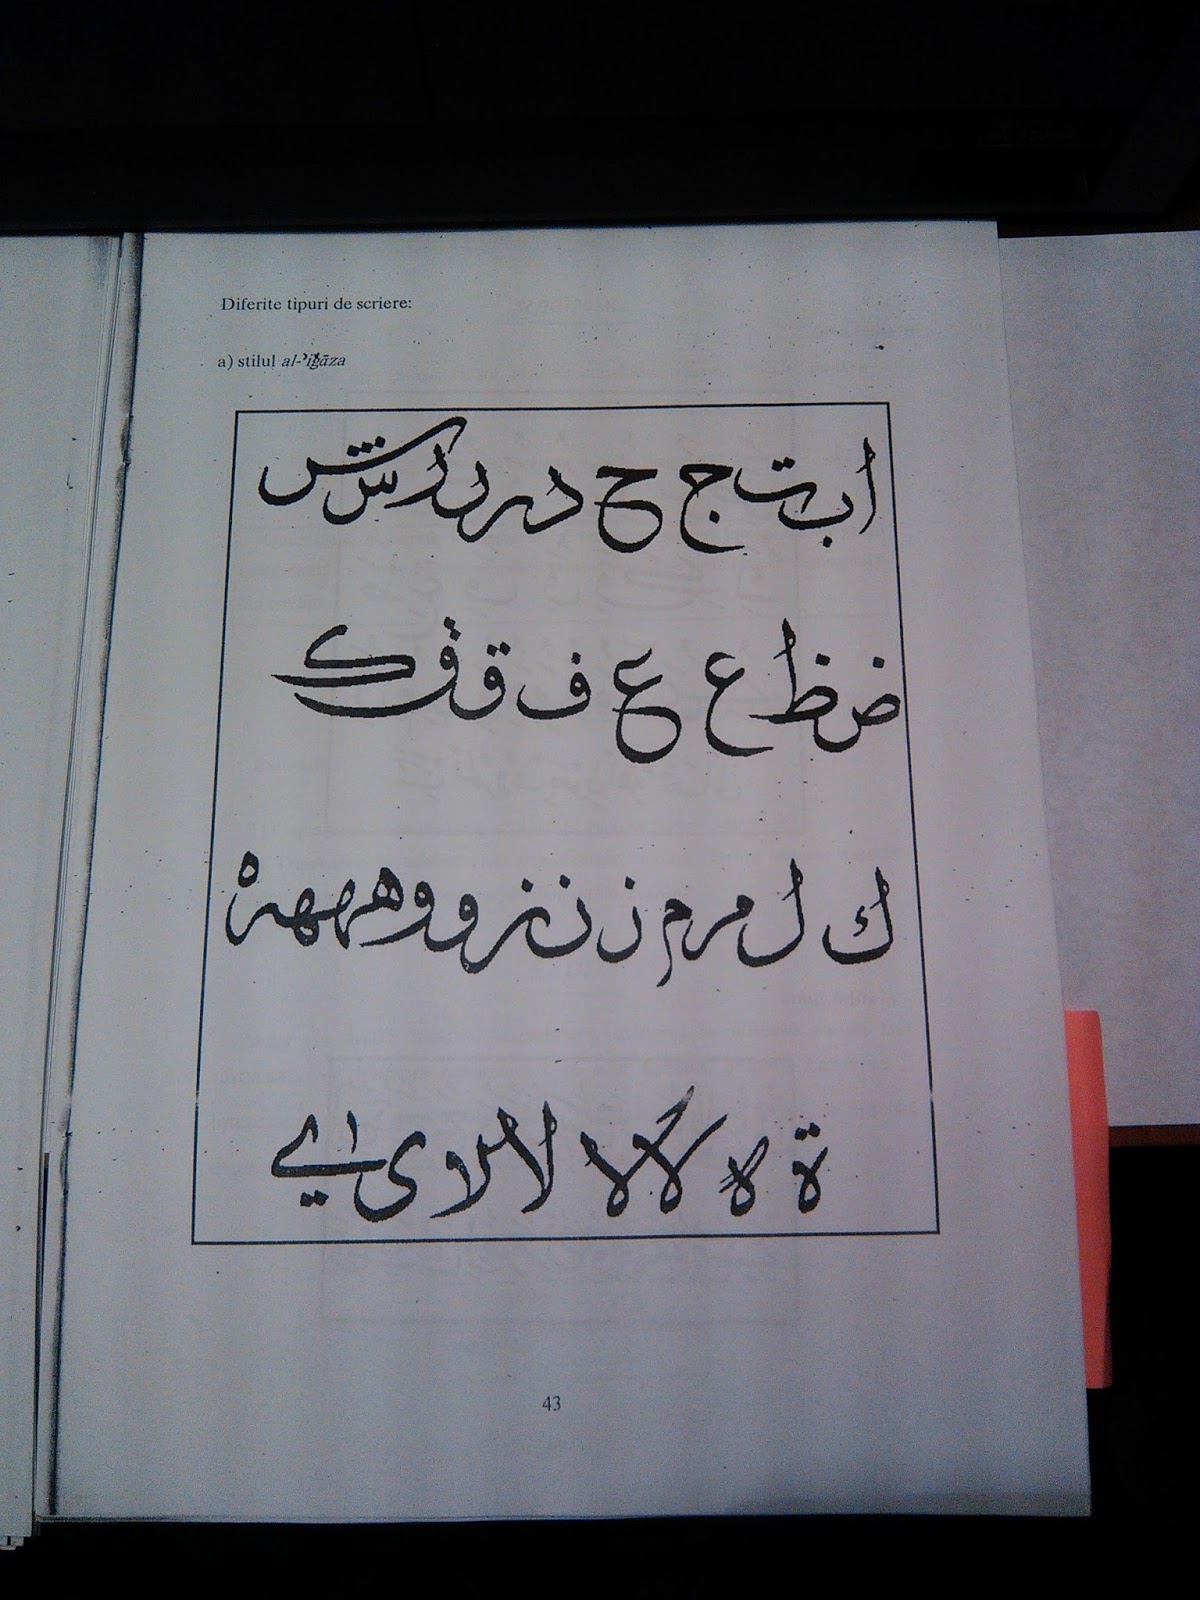 Diferite tipuri de scriere:
a) stilul al-ʾiǧāza
ا ب ت ج ح د ر ر د ر س ش
ض ظ ع ع ف ق ف ك
ك ل م ر م ن ن ز و و ه ه ه ه
ة ه لا لا لا لا ى ا ي
43